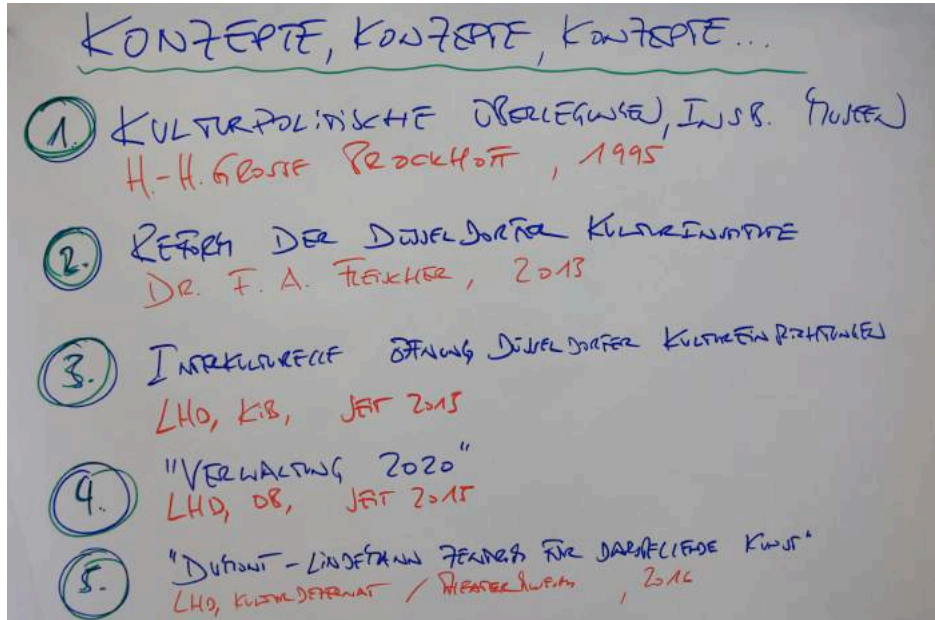 KONZEPTE, KONZEPTE, KONZEPTE...
1. KULTURPOLITISCHE ÜBERLEGUNGEN, INSB. MUSEEN
H.-H. GROSSE BROCKHOFF, 1995
2. REFORM DER DÜSSELDORFER KULTURINSTITUTE
DR. F. A. FLEISCHER, 2013
3. INTERKULTURELLE ÖFFNUNG DÜSSELDORFER KULTUREINRICHTUNGEN
LHD, KIB, SEIT 2015
4. "VERWALTUNG 2020"
LHD, OB, SEIT 2015
5. "DUMONT-LINDEMANN ZENTRUM FÜR DARSTELLENDE KUNST"
LHD, KULTURDEZERNAT / THEATERMUSEUM, 2016